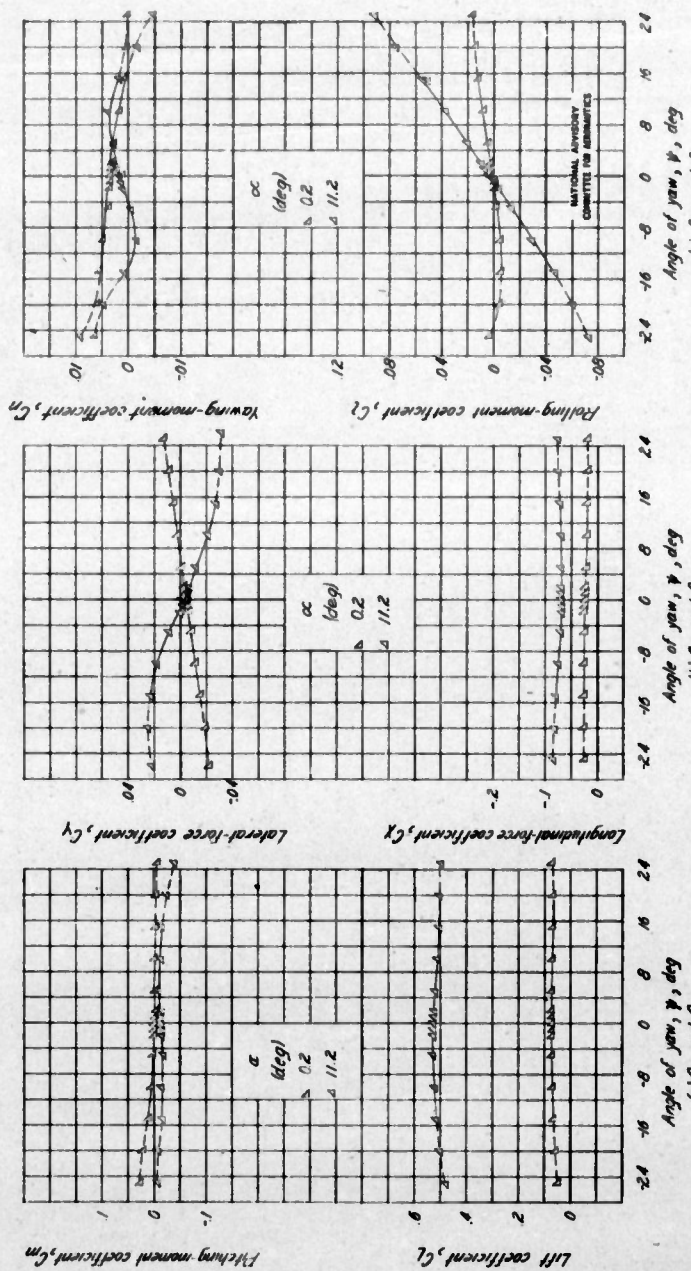 Pitching-moment coefficient, Cm
.1
0
-.1
α
(deg)
0.2
11.2
Lift coefficient, CL
.6
.4
.2
0
-24
-16
-8
0
8
16
24
Angle of yaw, ψ, deg
Lateral-force coefficient, CY
.04
0
-.04
α
(deg)
0.2
11.2
Longitudinal-force coefficient, CX
-.2
-.1
0
-24
-16
-8
0
8
16
24
Angle of yaw, ψ, deg
Yawing-moment coefficient, Cn
.01
0
-.01
α
(deg)
0.2
11.2
Rolling-moment coefficient, Cl
.12
.08
.04
0
-.04
-.08
NATIONAL ADVISORY
COMMITTEE FOR AERONAUTICS
-24
-16
-8
0
8
16
24
Angle of yaw, ψ, deg